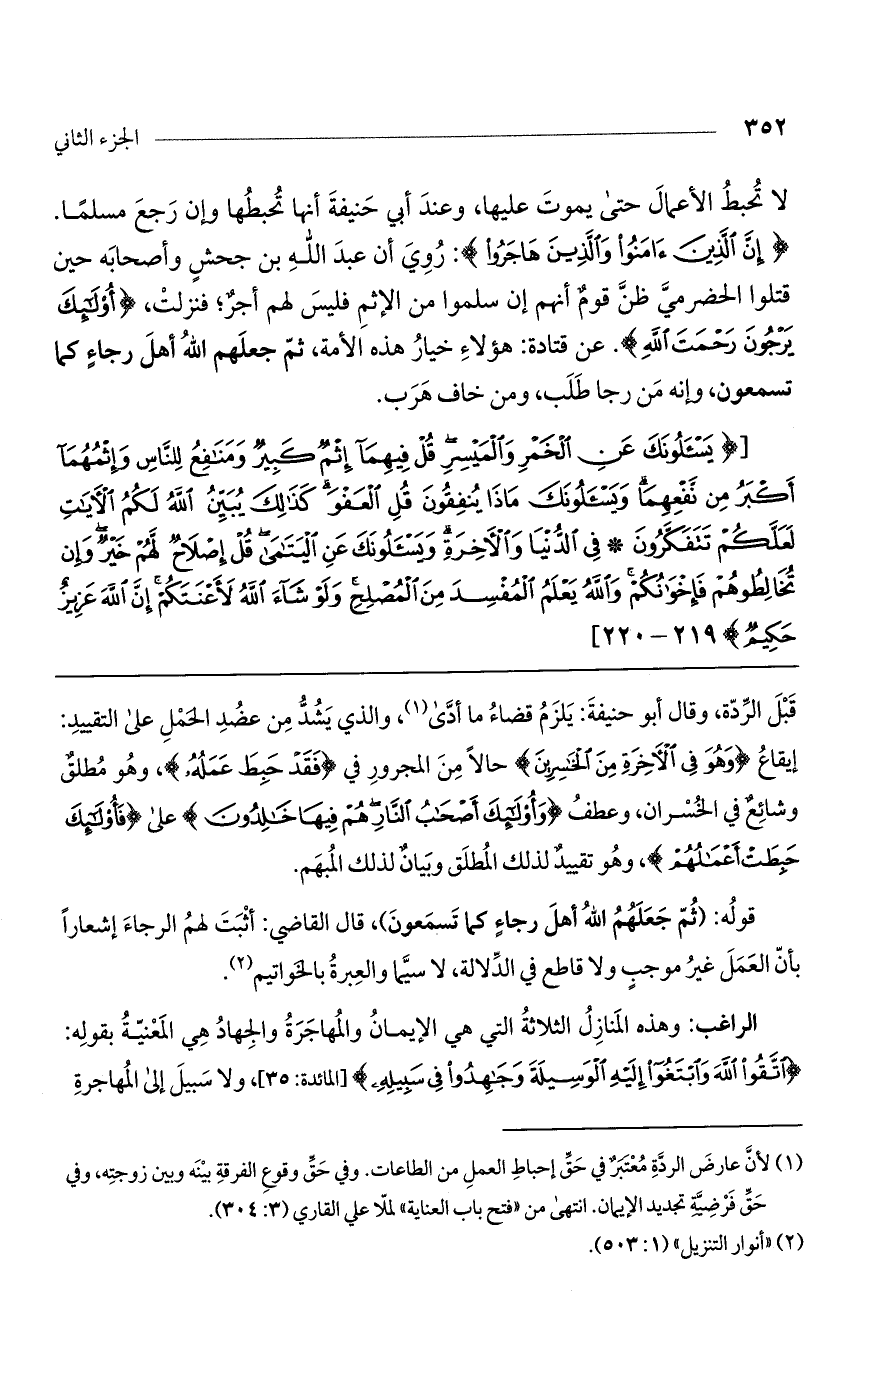 ٣٥٢ الجزء الثاني
لا تُحبطُ الأعمالَ حتىٰ يموتَ عليها، وعندَ أبي حَنيفةَ أنها تُحبطُها وإن رَجعَ مسلمًا.
﴿إِنَّ ٱلَّذِينَ ءَامَنُوا۟ وَٱلَّذِينَ هَاجَرُوا۟﴾: رُوِيَ أن عبدَ اللـهِ بن جحشٍ وأصحابَه حين
قتلوا الحضرميَّ ظنَّ قومٌ أنهم إن سلموا من الإثمِ فليسَ لهم أجرٌ؛ فنزلتْ، ﴿أُوْلَـٰٓئِكَ
يَرْجُونَ رَحْمَتَ ٱللَّهِ﴾. عن قتادة: هؤلاءِ خيارُ هذه الأمة، ثمّ جعلَهم اللهُ أهلَ رجاءٍ كما
تسمعون، وإنه مَن رجا طَلَب، ومن خاف هَرَب.
[﴿يَسْـَٔلُونَكَ عَنِ ٱلْخَمْرِ وَٱلْمَيْسِرِ ۖ قُلْ فِيهِمَآ إِثْمٌ كَبِيرٌ وَمَنَـٰفِعُ لِلنَّاسِ وَإِثْمُهُمَآ
أَكْبَرُ مِن نَّفْعِهِمَا ۗ وَيَسْـَٔلُونَكَ مَاذَا يُنفِقُونَ قُلِ ٱلْعَفْوَ ۗ كَذَٰلِكَ يُبَيِّنُ ٱللَّهُ لَكُمُ ٱلْـَٔايَـٰتِ
لَعَلَّكُمْ تَتَفَكَّرُونَ * فِى ٱلدُّنْيَا وَٱلْـَٔاخِرَةِ ۗ وَيَسْـَٔلُونَكَ عَنِ ٱلْيَتَـٰمَىٰ ۖ قُلْ إِصْلَاحٌ لَّهُمْ خَيْرٌ ۖ وَإِن
تُخَالِطُوهُمْ فَإِخْوَٰنُكُمْ ۚ وَٱللَّهُ يَعْلَمُ ٱلْمُفْسِدَ مِنَ ٱلْمُصْلِحِ ۚ وَلَوْ شَآءَ ٱللَّهُ لَأَعْنَتَكُمْ ۚ إِنَّ ٱللَّهَ عَزِيزٌ
حَكِيمٌ﴾ ٢١٩ - ٢٢٠]
قَبْلَ الرِّدّة، وقال أبو حنيفةَ: يَلزَمُ قضاءُ ما أدَّىٰ(١)، والذي يَشُدُّ مِن عضُدِ الحَمْلِ علىٰ التقييدِ:
إيقاعُ ﴿وَهُوَ فِى ٱلْـَٔاخِرَةِ مِنَ ٱلْخَـٰسِرِينَ﴾ حالاً مِنَ المجرورِ في ﴿فَقَدْ حَبِطَ عَمَلُهُۥ﴾، وهو مُطلقٌ
وشائعٌ في الخُسْـران، وعطفُ ﴿وَأُوْلَـٰٓئِكَ أَصْحَـٰبُ ٱلنَّارِ ۖ هُمْ فِيهَا خَـٰلِدُونَ﴾ علىٰ ﴿فَأُوْلَـٰٓئِكَ
حَبِطَتْ أَعْمَـٰلُهُمْ﴾، وهُو تقييدٌ لذلك المُطلَق وبَيانٌ لذلك المُبهَم.
قولُه: (ثُمّ جَعَلَهُمُ اللهُ أهلَ رجاءٍ كما تَسمَعونَ)، قال القاضي: أثْبَتَ لهمُ الرجاءَ إشعاراً
بأنّ العَمَلَ غيرُ موجبٍ ولا قاطع في الدِّلالة، لا سيَّما والعِبرةُ بالخَواتيم(٢).
الراغب: وهذه المَنازِلُ الثلاثةُ التي هي الإيمـانُ والمُهاجَرَةُ والجِهادُ هِي المَعْنيّـةُ بقولِه:
﴿ٱتَّقُوا۟ ٱللَّهَ وَٱبْتَغُوٓا۟ إِلَيْهِ ٱلْوَسِيلَةَ وَجَـٰهِدُوا۟ فِى سَبِيلِهِۦ﴾ [المائدة: ٣٥]، ولا سَبيلَ إلىٰ المُهاجرةِ
(١) لأنَّ عارضَ الردَّةِ مُعْتَبَرٌ في حَقِّ إحباطِ العملِ من الطاعات. وفي حَقِّ وقوعِ الفرقةِ بيْنَه وبين زوجتِه، وفي
حَقِّ فَرْضِيَّةِ تجديد الإيمان. انتهىٰ من «فتح باب العناية» لملّا علي القاري (٣: ٣٠٤).
(٢) «أنوار التنزيل» (١: ٥٠٣).